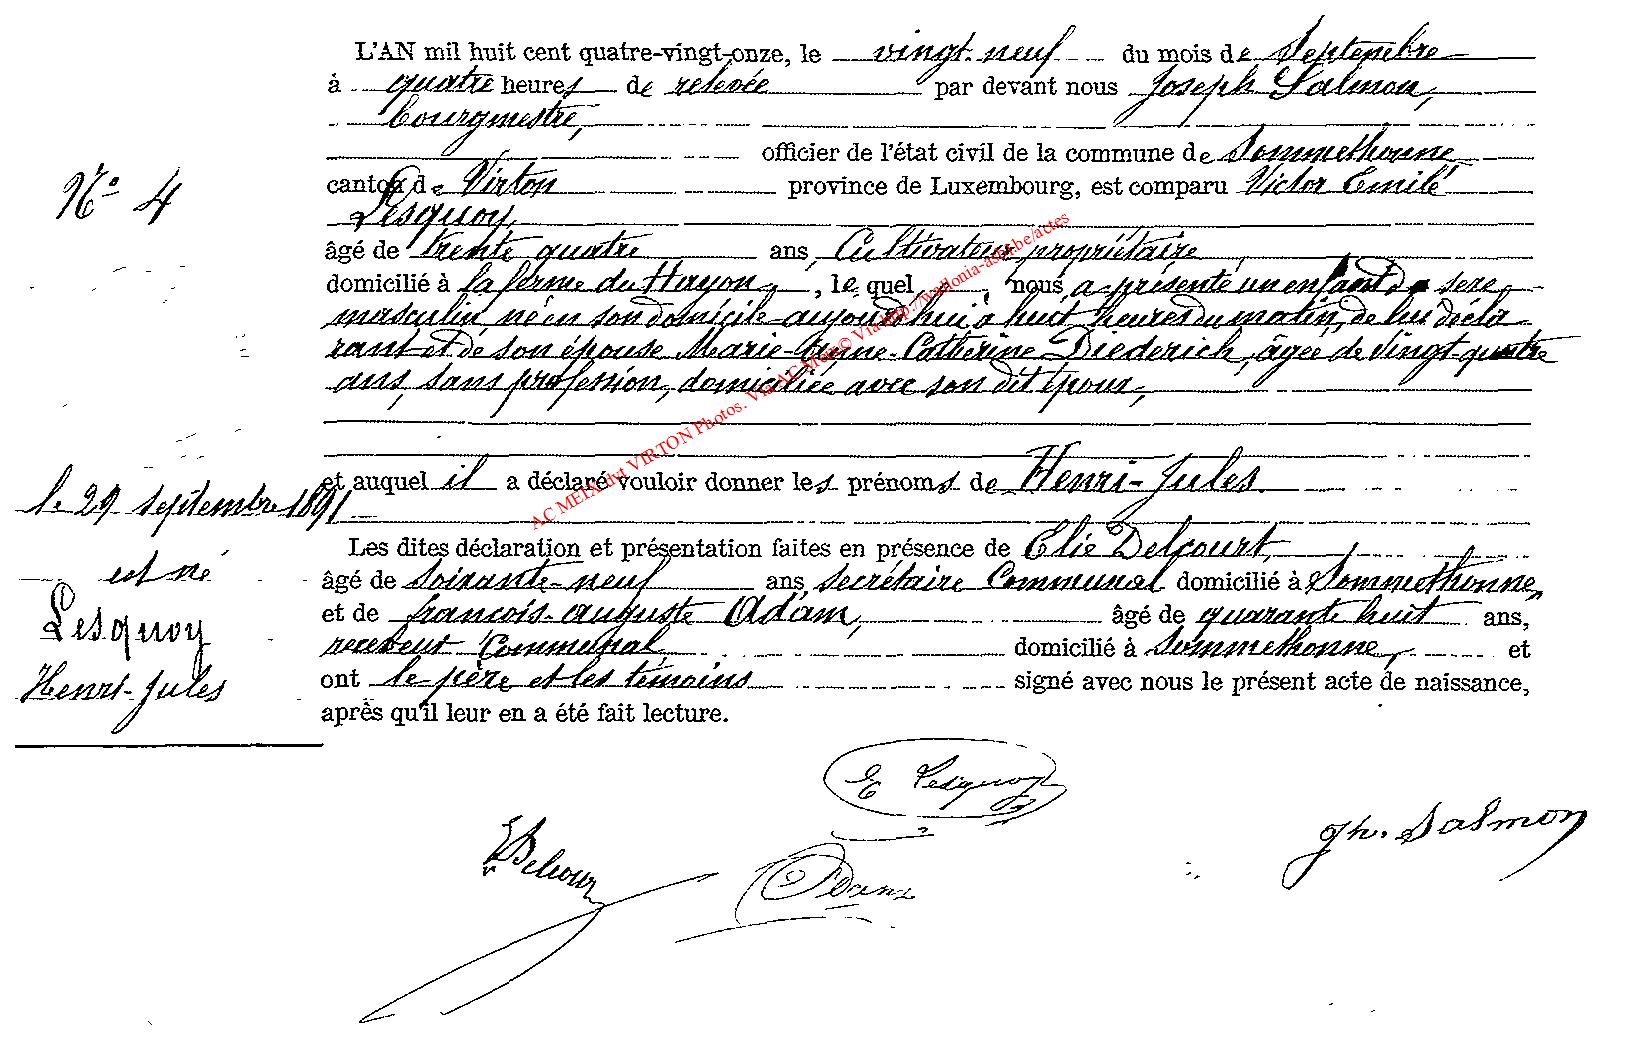 L'AN mil huit cent quatre-vingt-onze, le vingt-neuf du mois de Septembre
à quatre heures de relevée par devant nous Joseph Salmon,
bourgmestre,
officier de l'état civil de la commune de Sommethonne
N° 4
canton de Virton province de Luxembourg, est comparu Victor Emile
Lesquoy,
âgé de trente quatre ans, Cultivateur propriétaire
domicilié à la ferme du Hayon, lequel nous a présenté un enfant de sexe
masculin, né en son domicile aujourd'hui à huit heures du matin, de lui décla
rant et de son épouse Marie-Anne-Catherine Diederich, âgée de vingt-quatre
ans, sans profession, domiciliée avec son dit époux,
et auquel il a déclaré vouloir donner les prénoms de Henri-Jules.
le 29 septembre 1891
est né
Lesquoy
Henri-Jules
Les dites déclaration et présentation faites en présence de Elie Delcourt,
âgé de soixante-neuf ans, secrétaire Communal domicilié à Sommethonne,
et de françois-auguste Adam, âgé de quarante huit ans,
receveur Communal domicilié à Sommethonne, et
ont le père et les témoins signé avec nous le présent acte de naissance,
après qu'il leur en a été fait lecture.
E Lesquoy
E Delcour
Adam
Jh. Salmon